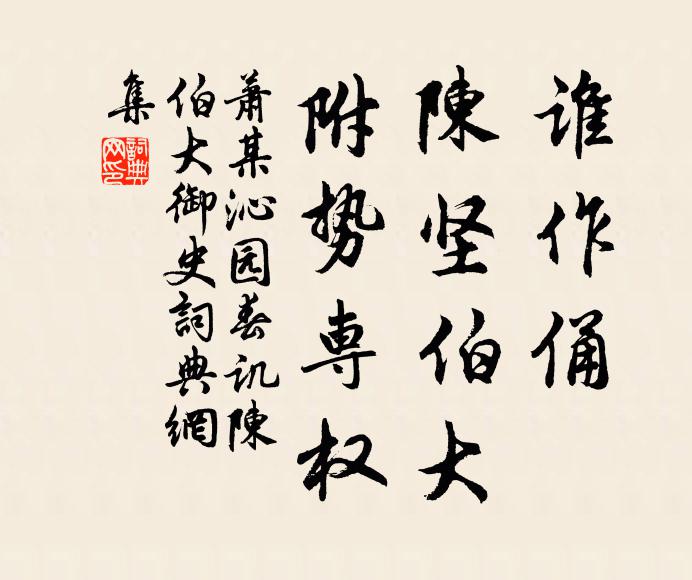 谁作俑
陳坚伯大
附势専权
萧某沁园春讥陳
伯大御史詞典網
集
詞典
网印